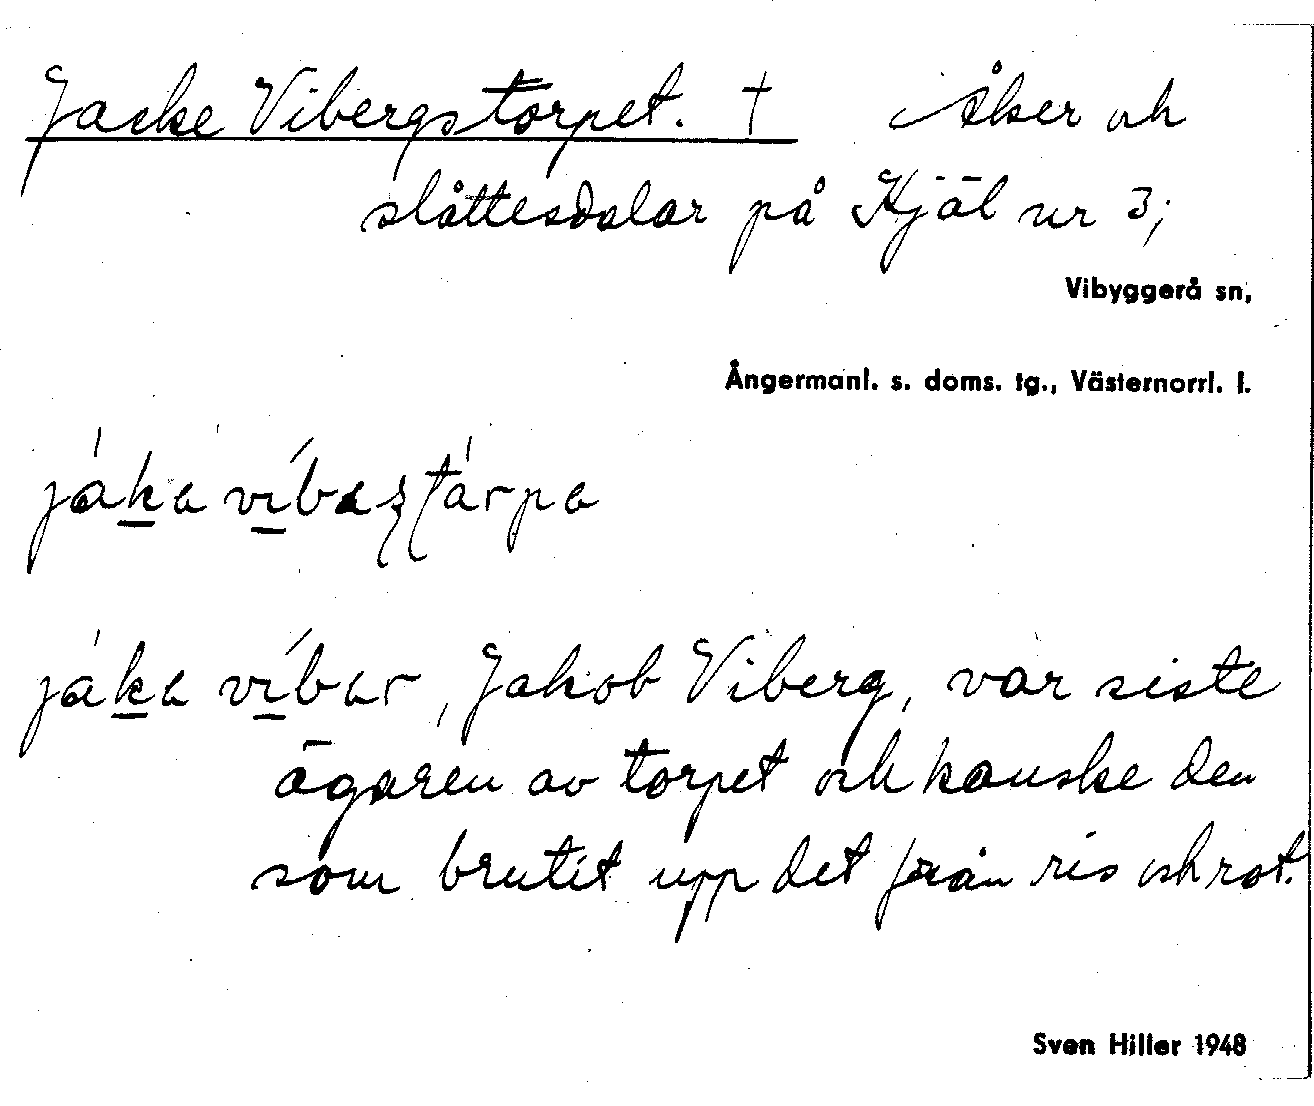 Jacke Vibergstorpet. † Åker och
slåttesdalar på Kjäl nr 3;
Vibyggerå sn,
Ångermanl. s. doms. tg., Västernorrl. l.
jáka víbaʂʈárpa
jáka víbar, Jakob Viberg, var siste
ägaren av torpet och kanske den
som brutit upp det från ris och rot.
Sven Hiller 1948